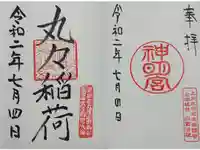 奉拝
神明宮
令和二年七月四日
丸々稲荷
令和二年七月四日